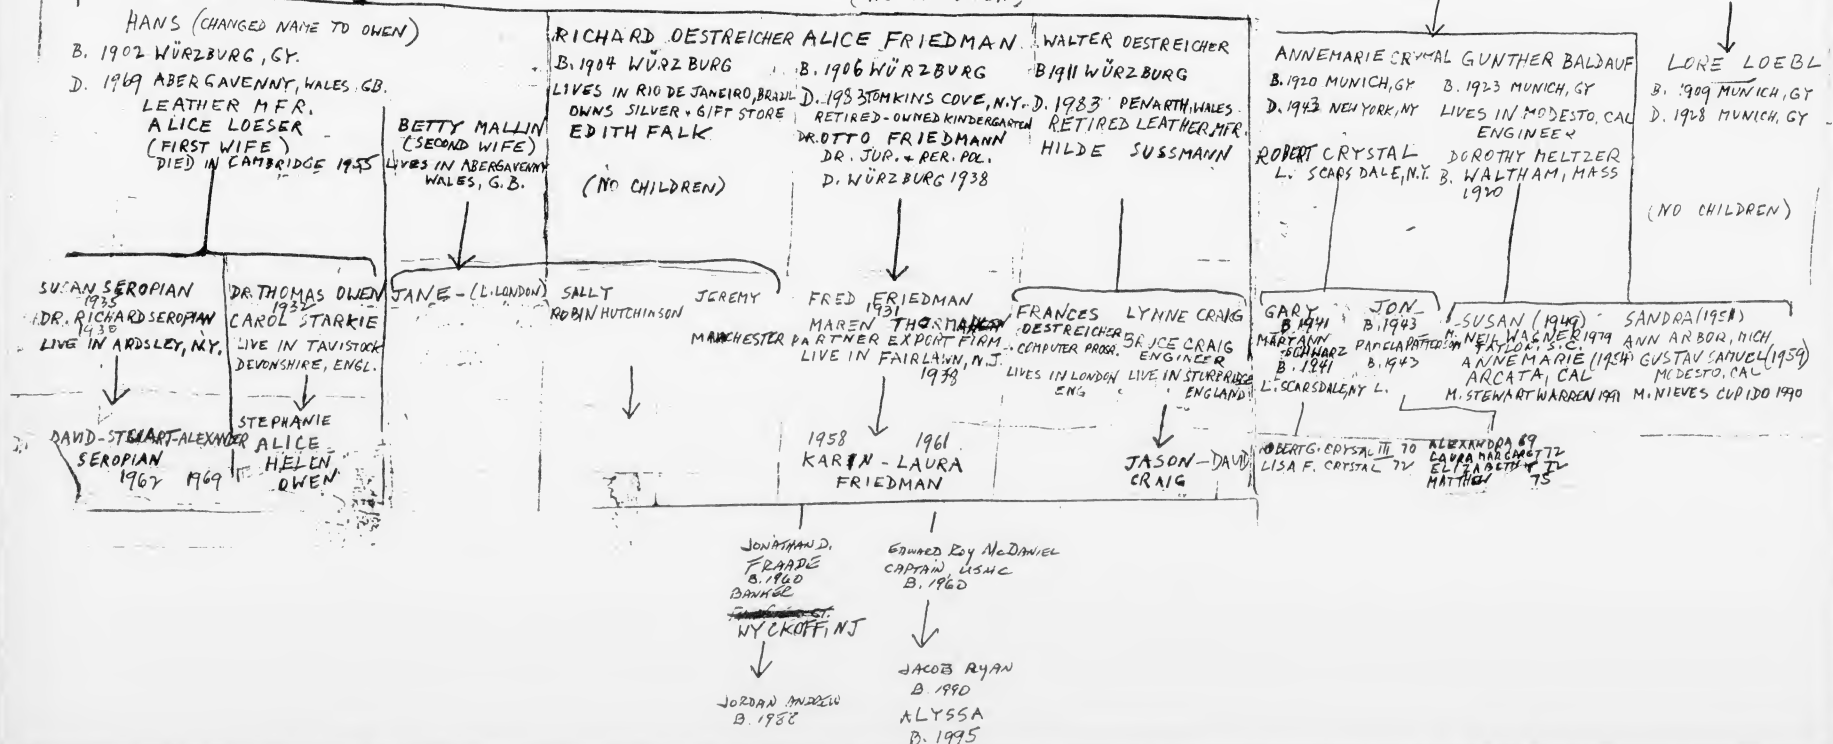 HANS (CHANGED NAME TO OWEN)
B. 1902 WÜRZBURG, GY.
D. 1969 ABERGAVENNY, WALES, GB.
LEATHER MFR.
ALICE LOESER
(FIRST WIFE)
DIED IN CAMBRIDGE 1955
BETTY MALLIN
(SECOND WIFE)
LIVES IN ABERGAVENNY
WALES, G.B.
RICHARD OESTREICHER
B. 1904 WÜRZBURG
LIVES IN RIO DE JANEIRO, BRAZIL
OWNS SILVER + GIFT STORE
EDITH FALK
(NO CHILDREN)
ALICE FRIEDMAN
B. 1906 WÜRZBURG
D. 1983 TOMKINS COVE, N.Y.
RETIRED-OWNED KINDERGARTEN
DR. OTTO FRIEDMANN
DR. JUR. + RER. POL.
D. WÜRZBURG 1938
WALTER OESTREICHER
B 1911 WÜRZBURG
D. 1983 PENARTH, WALES
RETIRED LEATHER MFR.
HILDE SUSSMANN
ANNEMARIE CRYSTAL
B. 1920 MUNICH, GY
D. 1943 NEW YORK, NY
ROBERT CRYSTAL
L. SCARSDALE, N.Y.
GUNTHER BALDAUF
B. 1923 MUNICH, GY
LIVES IN MODESTO, CAL
ENGINEER
DOROTHY MELTZER
B. WALTHAM, MASS
1920
LORE LOEBL
B. 1909 MUNICH, GY
D. 1928 MUNICH, GY
(NO CHILDREN)
SUSAN SEROPIAN
1935
DR. RICHARD SEROPIAN
1930
LIVE IN ARDSLEY, N.Y.
DR. THOMAS OWEN
1932
CAROL STARKIE
LIVE IN TAVISTOCK
DEVONSHIRE, ENGL.
JANE - (L. LONDON)
SALLY
ROBIN HUTCHINSON
JEREMY
MANCHESTER
FRED FRIEDMAN
1931
MAREN
PARTNER EXPORT FIRM
LIVE IN FAIRLAWN, N.J.
1938
FRANCES
OESTREICHER
COMPUTER PROGR.
LIVES IN LONDON
ENG
LYNNE CRAIG
BRUCE CRAIG
ENGINEER
LIVE IN STURBRIDGE
ENGLAND
GARY
B. 1941
MARYANN
SCHWARZ
B. 1941
L. SCARSDALE, NY
JON
B. 1943
PAMELA PATTERSON
B. 1943
L.
SUSAN (1949)
M. NEIL WAGNER 1979
TAYLOR, S.C.
ANNEMARIE (1954)
ARCATA, CAL
M. STEWART WARREN 1991
SANDRA (1951)
ANN ARBOR, MICH
GUSTAV SAMUEL (1959)
MODESTO, CAL
M. NIEVES CUPIDO 1990
DAVID-STEUART-ALEXANDER
SEROPIAN
1962 1969
STEPHANIE
ALICE
HELEN
OWEN
1958 1961
KARIN - LAURA
FRIEDMAN
JASON - DAVID
CRAIG
ROBERT G. CRYSTAL III 70
LISA F. CRYSTAL 72
ALEXANDRA 69
LAURA MARGARET 72
ELIZABETH 72
MATTHEW 75
JONATHAN D.
FRAADE
B. 1960
BANKER
WYCKOFF, NJ
EDWARD ROY McDANIEL
CAPTAIN, USMC
B. 1960
JORDAN ANDREW
B. 1988
JACOB RYAN
B. 1990
ALYSSA
B. 1995